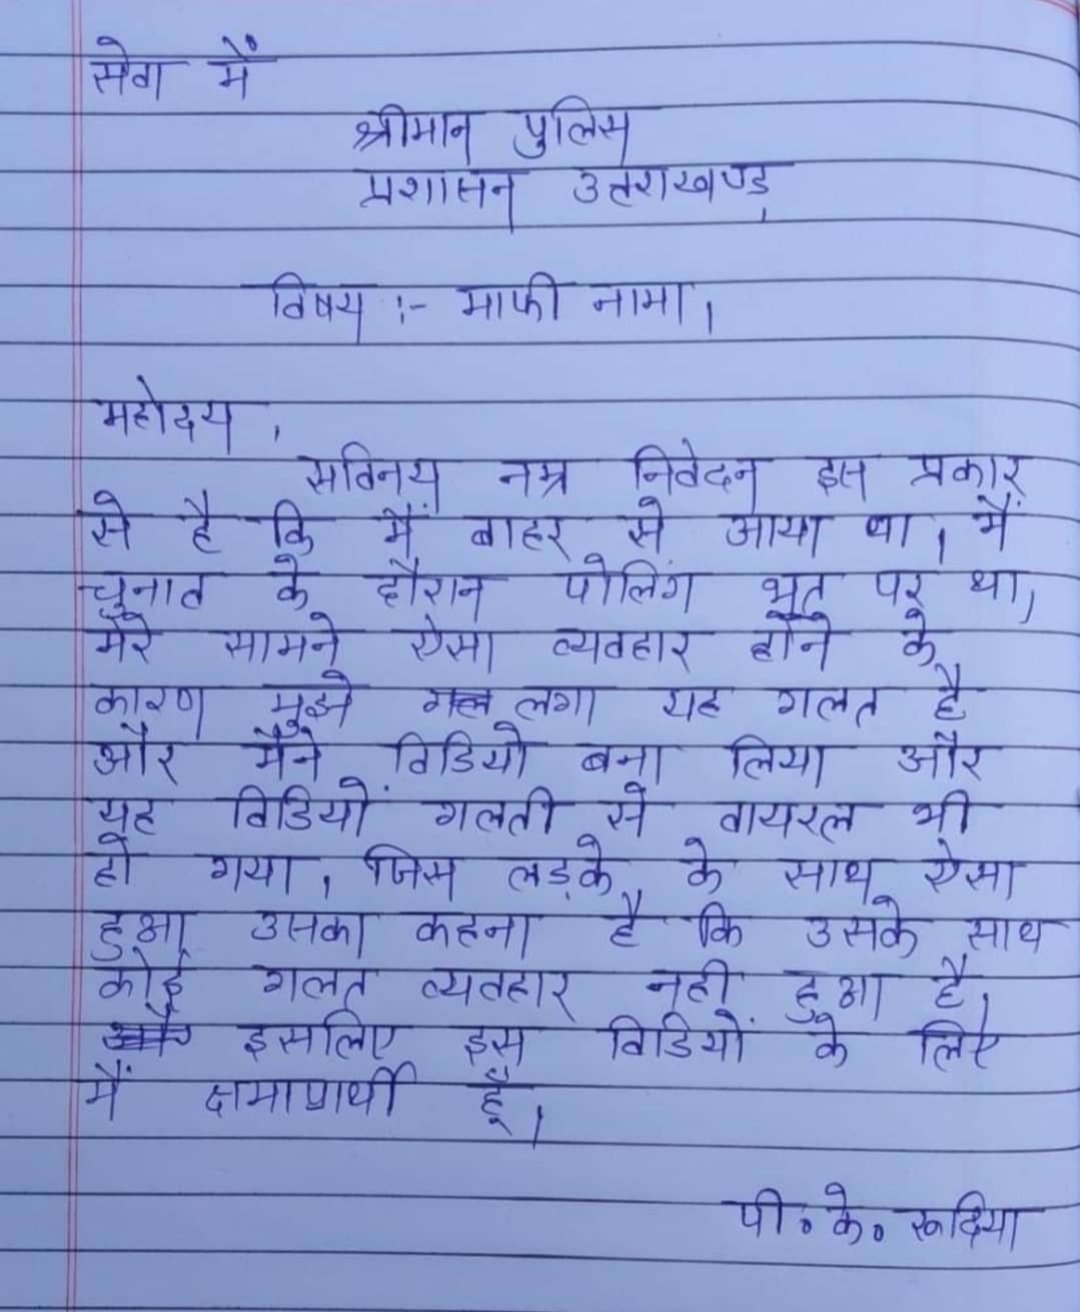 सेवा में
श्रीमान पुलिस
प्रशासन उत्तराखण्ड,
विषय :- माफी नामा।
महोदय,
सविनय नम्र निवेदन इस प्रकार
से है कि मैं बाहर से आया था। मैं
चुनाव के दौरान पोलिंग भूत पर था,
मेरे सामने ऐसा व्यवहार होने के
कारण मुझे लगा यह गलत है
और मैने विडियो बना लिया और
यह विडियों गलती से वायरल भी
हो गया, जिस लड़के के साथ ऐसा
हुआ उसका कहना है कि उसके साथ
कोई गलत व्यवहार नही हुआ है,
इसलिए इस विडियों के लिए
मैं क्षमाप्रार्थी हूँ।
पी॰ के॰